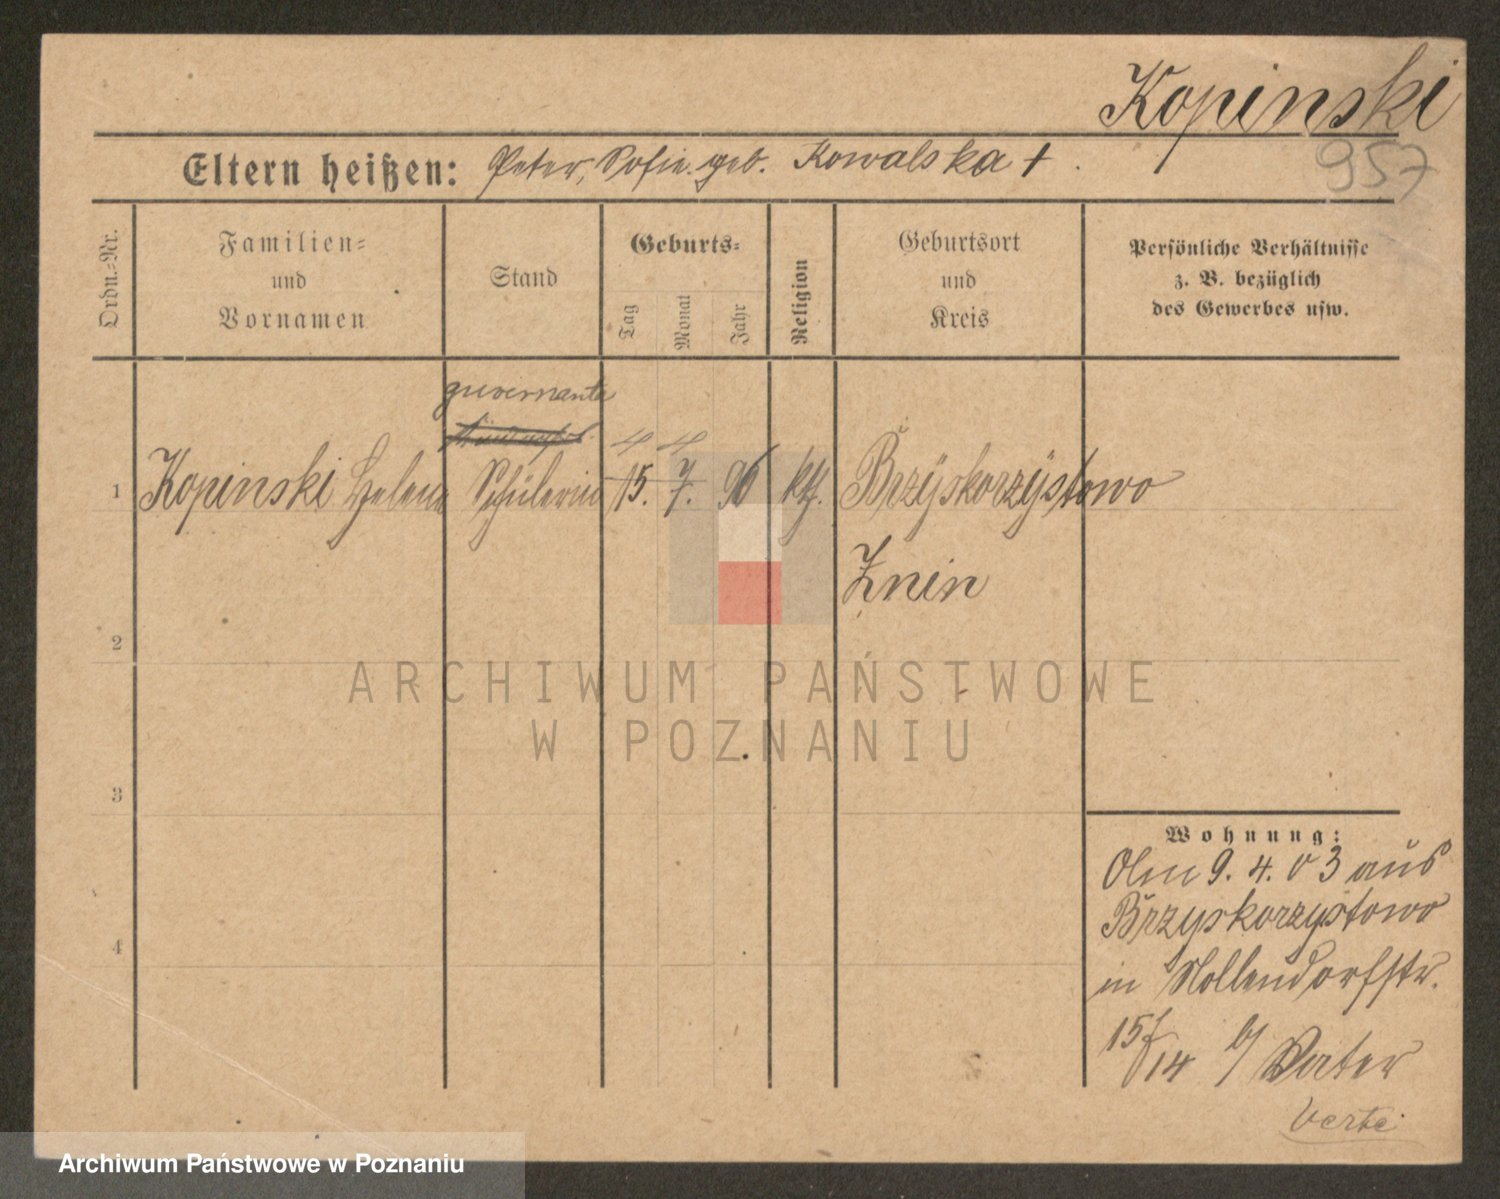 Kopinski
957
Eltern heißen: Peter, Sofie geb. Kowalska +.
Ordn.=Nr.
Familien=
und
Vornamen
Stand
Geburts=
Tag
Monat
Jahr
Religion
Geburtsort
und
Kreis
Persönliche Verhältnisse
z. B. bezüglich
des Gewerbes usw.
guvernanta
4 4
1 Kopinski Helene Schülerin 15. 7. 96 kth. Brzyskorzystowo
Znin
2
ARCHIWUM PAŃSTWOWE
W POZNANIU
3
Wohnung:
9. 4. 03 aus
Brzyskorzystowo
in Nollendorfstr.
15/14 b/ Vater
verte
4
Archiwum Państwowe w Poznaniu